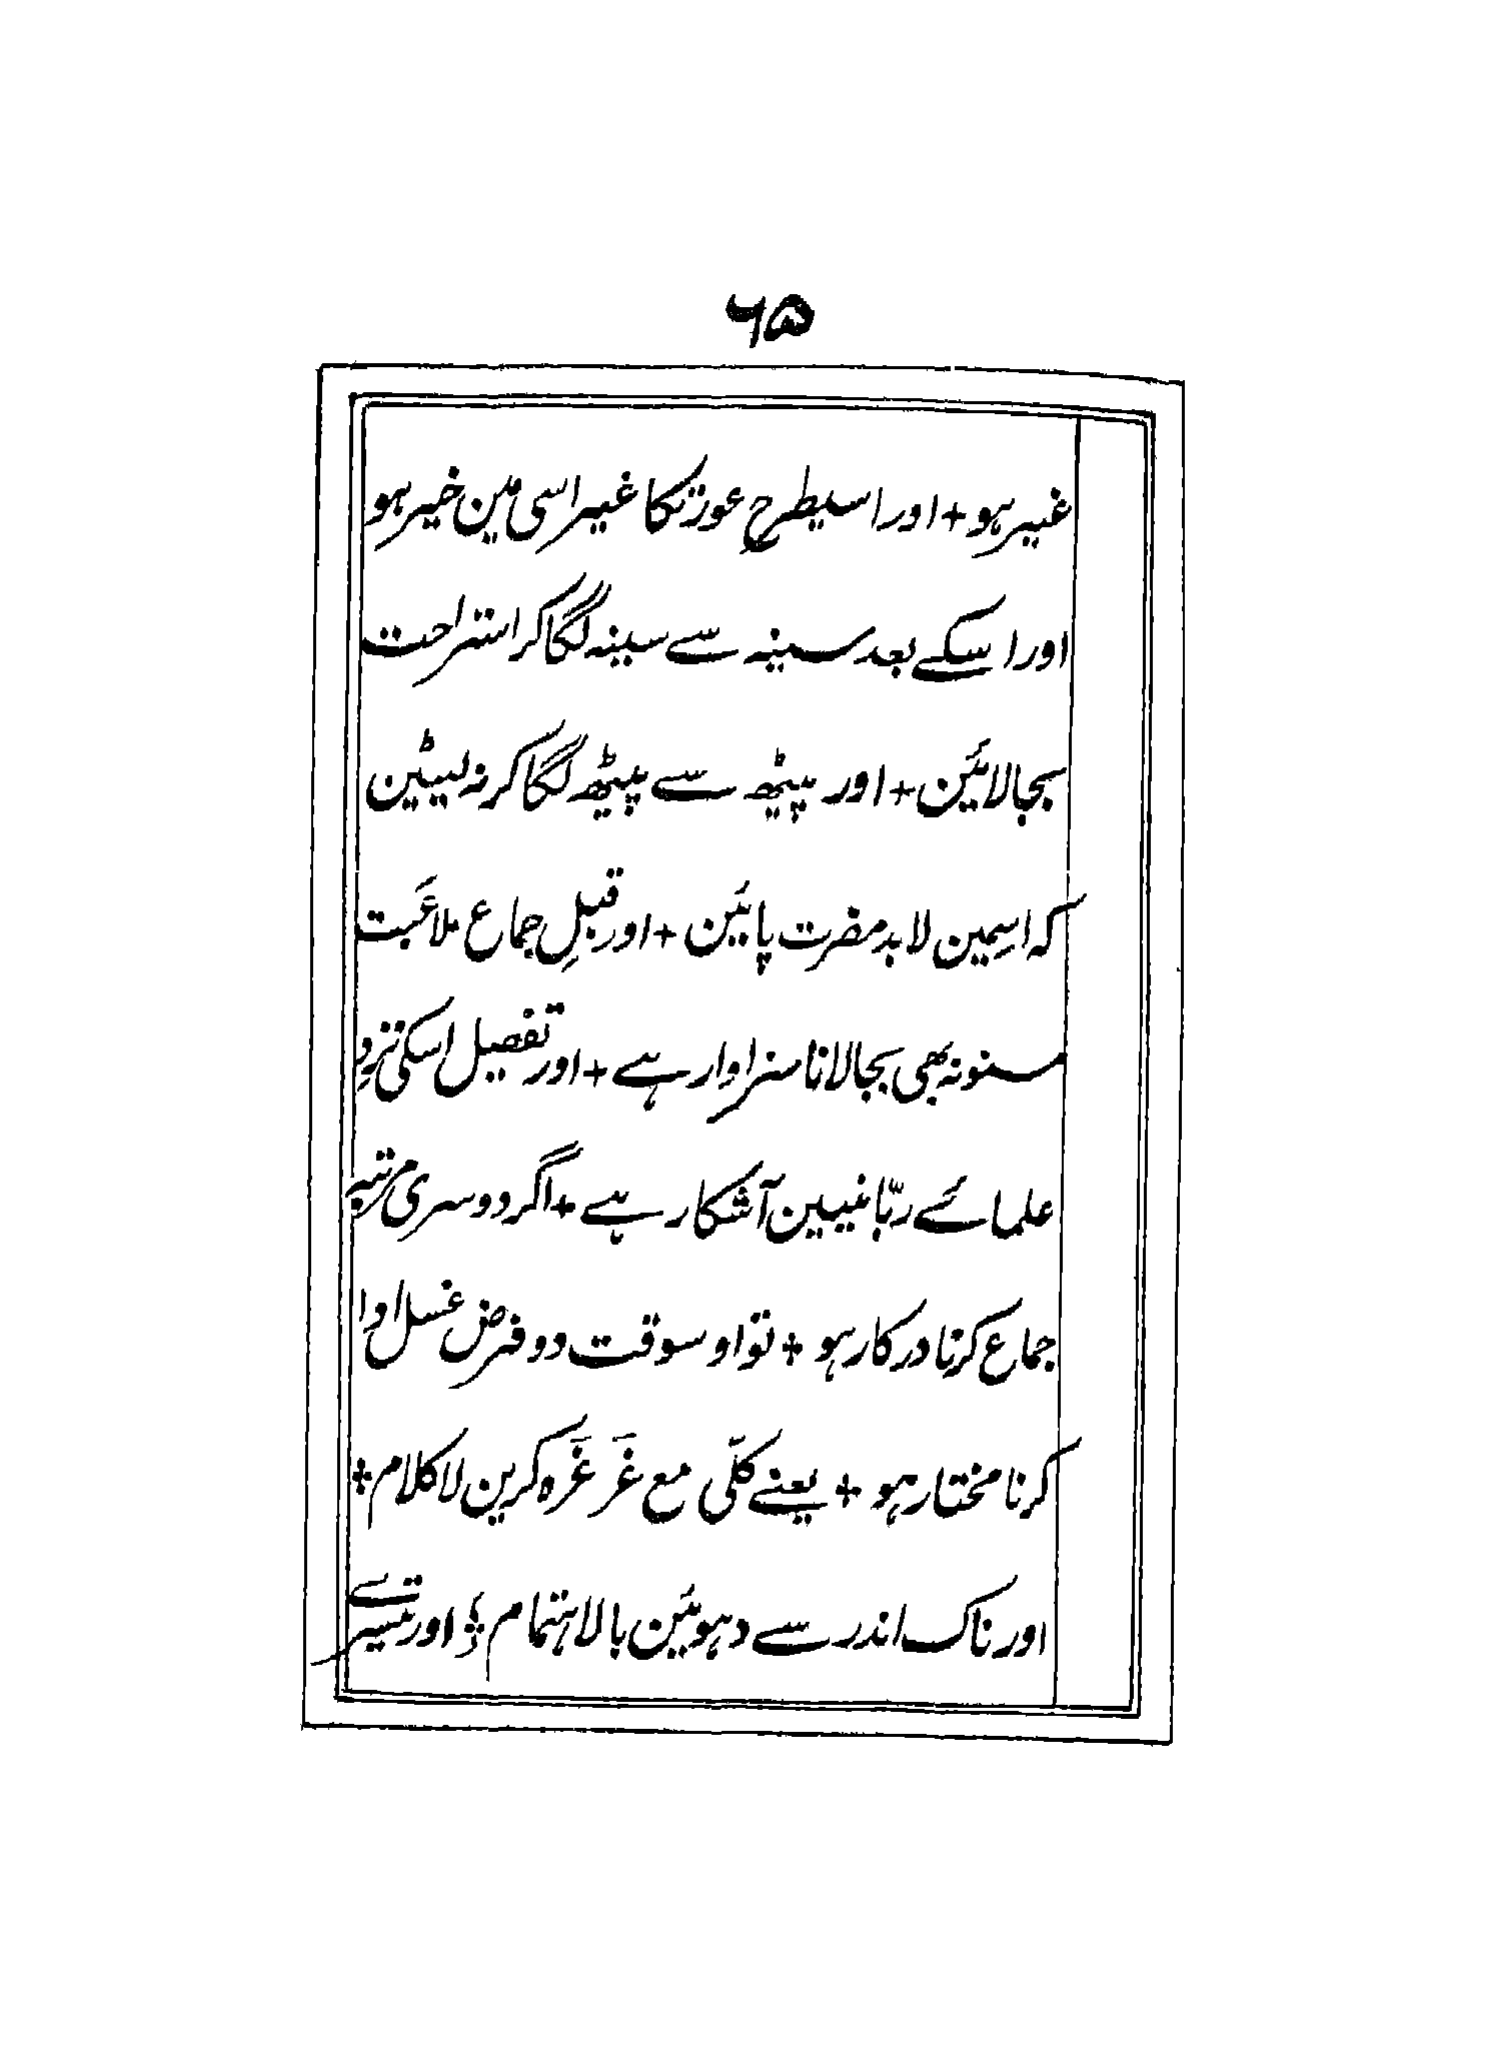 ۶۵
غیر ہو + اور اسیطرح عورتکا غیر اسی مین خیر ہو
اور اسکے بعد سینہ سے سینہ لگا کر استراحت
بجالائین + اور پیٹھ سے پیٹھ لگا کر نہ لیٹین
کہ اسمین لابد مضرت پائین + اور قبلِ جماع ملاعَبت
مسنونہ بھی بجالانا سزاوار ہے + اور تفصیل اسکی نزدِ
علمائے ربّانیین آشکار ہے + اگر دوسری مرتبہ
جماع کرنا درکار ہو + تو اوسوقت دو فرض غسل ادا
کرنا مختار ہو + یعنے کلّی مع غَرغَرہ کرین لاکلام +
اور ناک اندر سے دہوئین بالاہتمام + اور تیسرے